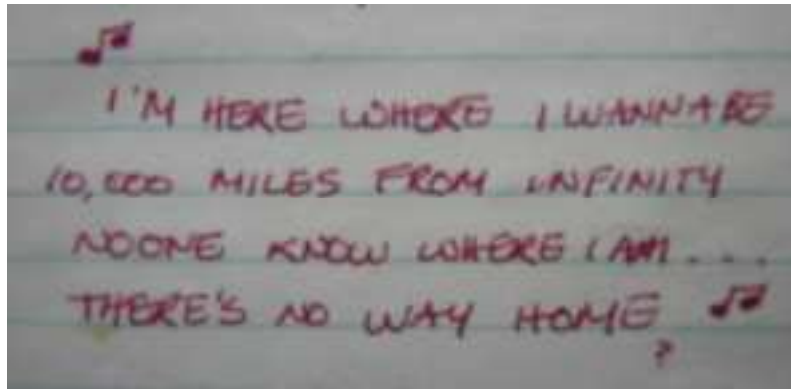 I'M HERE WHERE I WANNA BE
10,000 MILES FROM INFINITY
NOONE KNOW WHERE I AM...
THERE'S NO WAY HOME
?